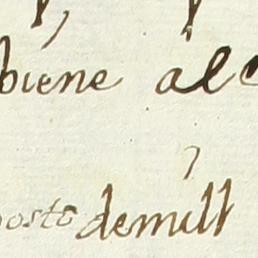 biene al
posto demill